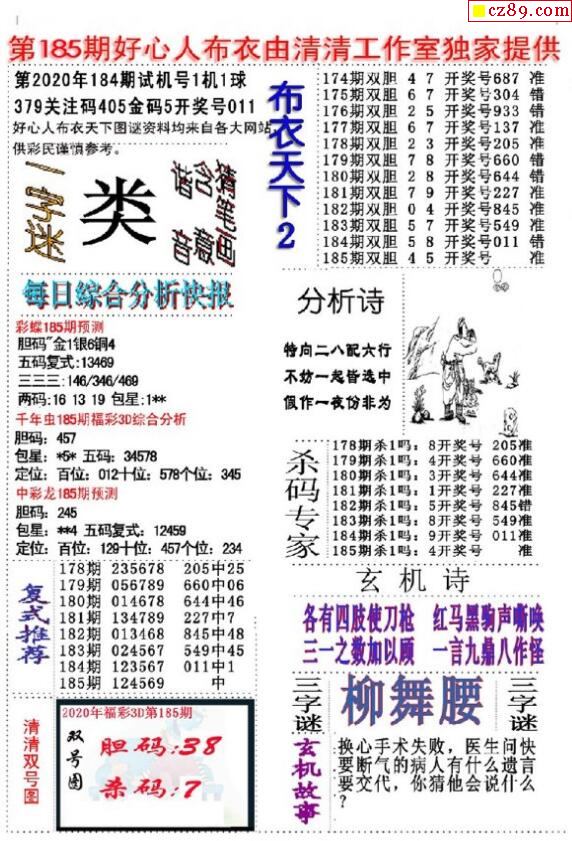 cz89.com
第185期好心人布衣由清清工作室独家提供
第2020年184期试机号1机1球
379关注码405金码5开奖号011
好心人布衣天下图谜资料均来自各大网站,
供彩民谨慎参考。
一字迷
类
猜笔画
含义
谐音
布衣天下2
174期双胆 4 7 开奖号687 准
175期双胆 6 7 开奖号304 错
176期双胆 2 5 开奖号933 错
177期双胆 6 7 开奖号137 准
178期双胆 2 3 开奖号205 准
179期双胆 7 8 开奖号660 错
180期双胆 2 8 开奖号644 错
181期双胆 7 9 开奖号227 准
182期双胆 0 4 开奖号845 准
183期双胆 5 7 开奖号549 准
184期双胆 5 8 开奖号011 错
185期双胆 4 5 开奖号 准
每日綜合分析快报
彩蝶185期预测
胆码~金1银6铜4
五码复式:13469
三三三:146/346/469
两码:16 13 19 包星:1**
千年虫185期福彩3D综合分析
胆码: 457
包星: *5* 五码: 34578
定位: 百位: 012十位: 578个位: 345
中彩龙185期预测
胆码: 245
包星: **4 五码复式: 12459
定位: 百位: 129十位: 457个位: 234
分析诗
特向二八配大行
不妨一起皆选中
假作一夜份非为
杀码专家
178期杀1吗: 8开奖号 205准
179期杀1吗: 4开奖号 660准
180期杀1吗: 3开奖号 644准
181期杀1吗: 1开奖号 227准
182期杀1吗: 5开奖号 845错
183期杀1吗: 8开奖号 549准
184期杀1吗: 9开奖号 011准
185期杀1吗: 4开奖号 准
复式推荐
178期 235678 205中25
179期 056789 660中06
180期 014678 644中46
181期 134789 227中7
182期 013468 845中48
183期 024567 549中45
184期 123567 011中1
185期 124569 中
玄机诗
各有四肢使刀枪 红马黑驹声嘶唤
三一之数加以顾 一言九鼎八作怪
三字谜
柳舞腰
三字谜
清清双号图
2020年福彩3D第185期
双号图
胆码:38
杀码:7
玄机故事
换心手术失败，医生问快
要断气的病人有什么遗言
要交代，你猜他会说什么
?